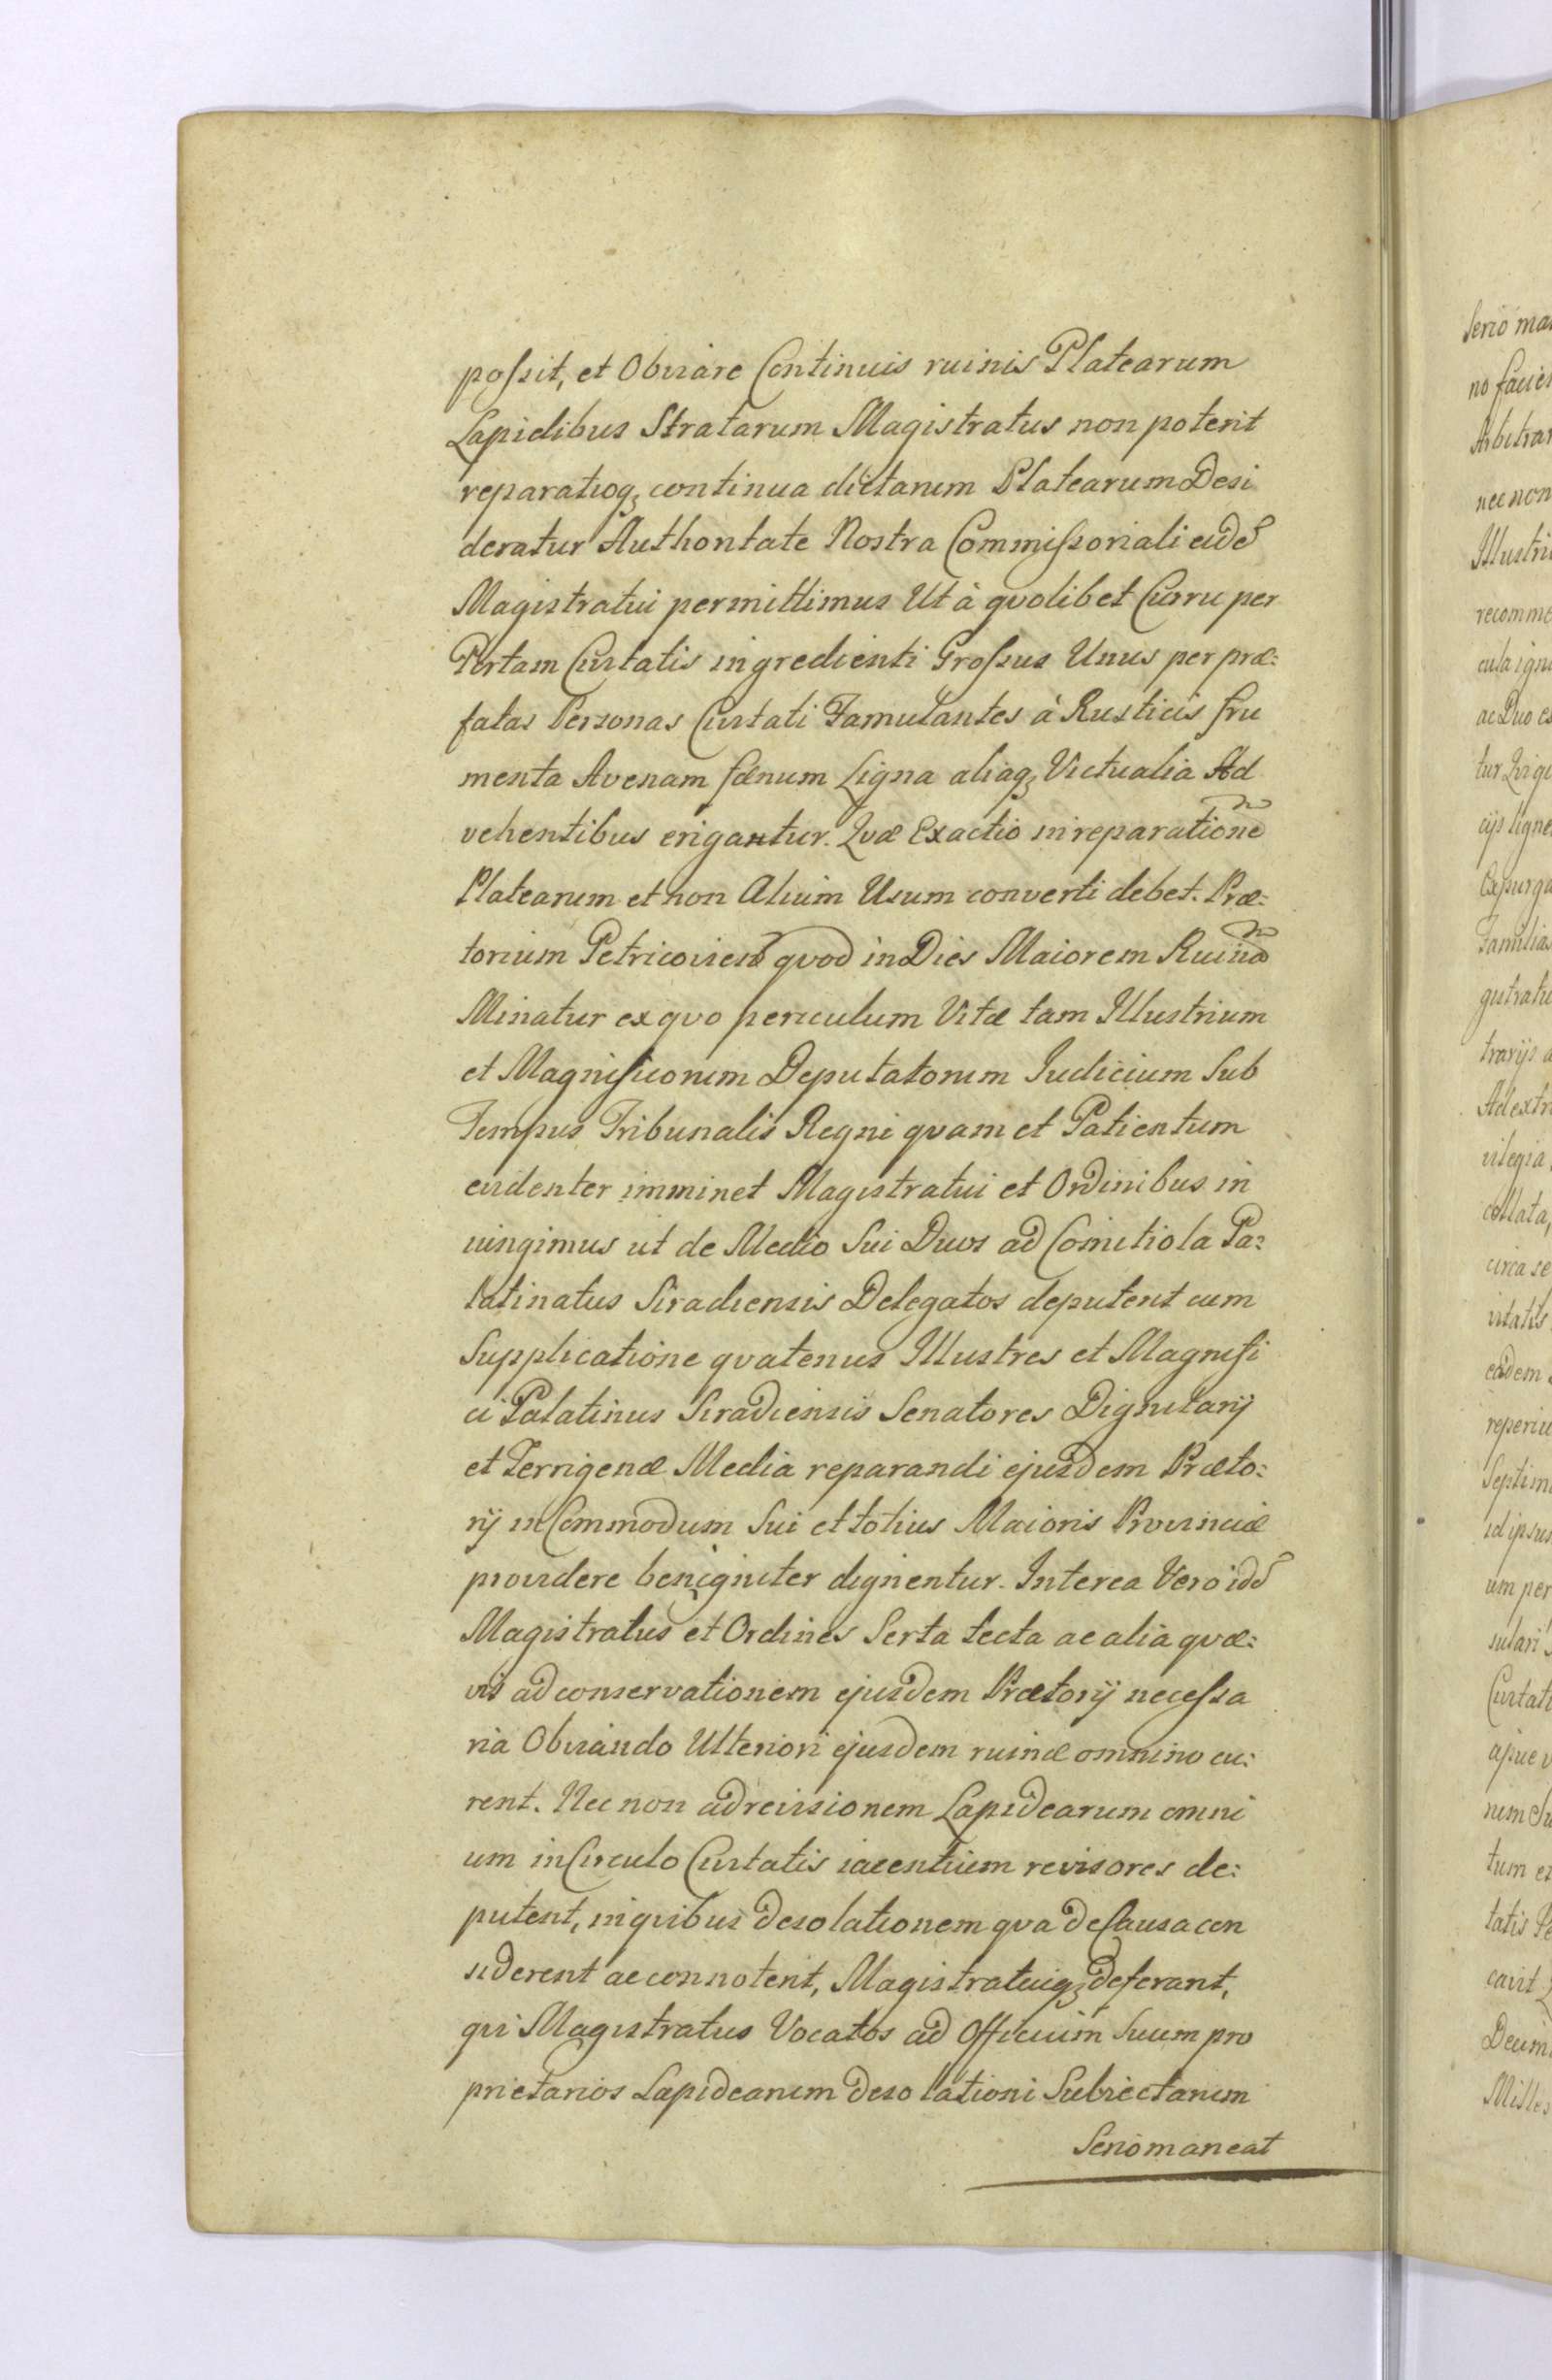 possit, et Obviare Continuis ruinis Platearum
Lapidibus Stratarum Magistratus non poterit
reparatioq; continua dictarum Platearum Desi
deratur Authoritate Nostra Commissoriali eidē
Magistratui permittimus Ut à quolibet Curru per
Portam Civitatis ingredienti Grossus Unus per præ:
fatas Personas Civitati Famulantes à Rusticis fru
menta Avenam fœnum Ligna aliaq; Victualia Ad
vehentibus erigantur. Qvæ Exactio in reparationē
Platearum et non Alium Usum converti debet. Præ:
torium Petricoviens quod in Dies Maiorem Ruinā
Minatur ex quo periculum Vitæ tam Illustrium
et Magnificorum Deputatorum Iudicium Sub
Tempus Tribunalis Regni quam et Patientum
evidenter imminet Magistratui et Ordinibus in
iungimus ut de Medio Sui Duos ad Comitiola Pa:
latinatus Siradiensis Delegatos deputent cum
Supplicatione quatenus Illustres et Magnifi
ci Palatinus Siradiensis Senatores Dignitarij
et Terrigenæ Media reparandi ejusdem Præto:
rij in Commodum Sui et totius Maioris Provinciæ
providere benigniter dignentur. Interea Vero idē
Magistratus et Ordines Serta tecta ac alia quæ:
vis ad conservationem ejusdem Prætorij necessa
ria Obviando Ulteriori ejusdem ruinæ omnino cu:
rent. Nec non ad revisionem Lapidearum omni
um in Circulo Civitatis iacentium revisores de:
putent, in quibus desolationem qua de Causa con
siderent ac connotent, Magistratuiq; deferant,
qui Magistratus Vocatos ad Officium Suum pro
prietarios Lapidearum desolationi Subiectarum
Serio maneat